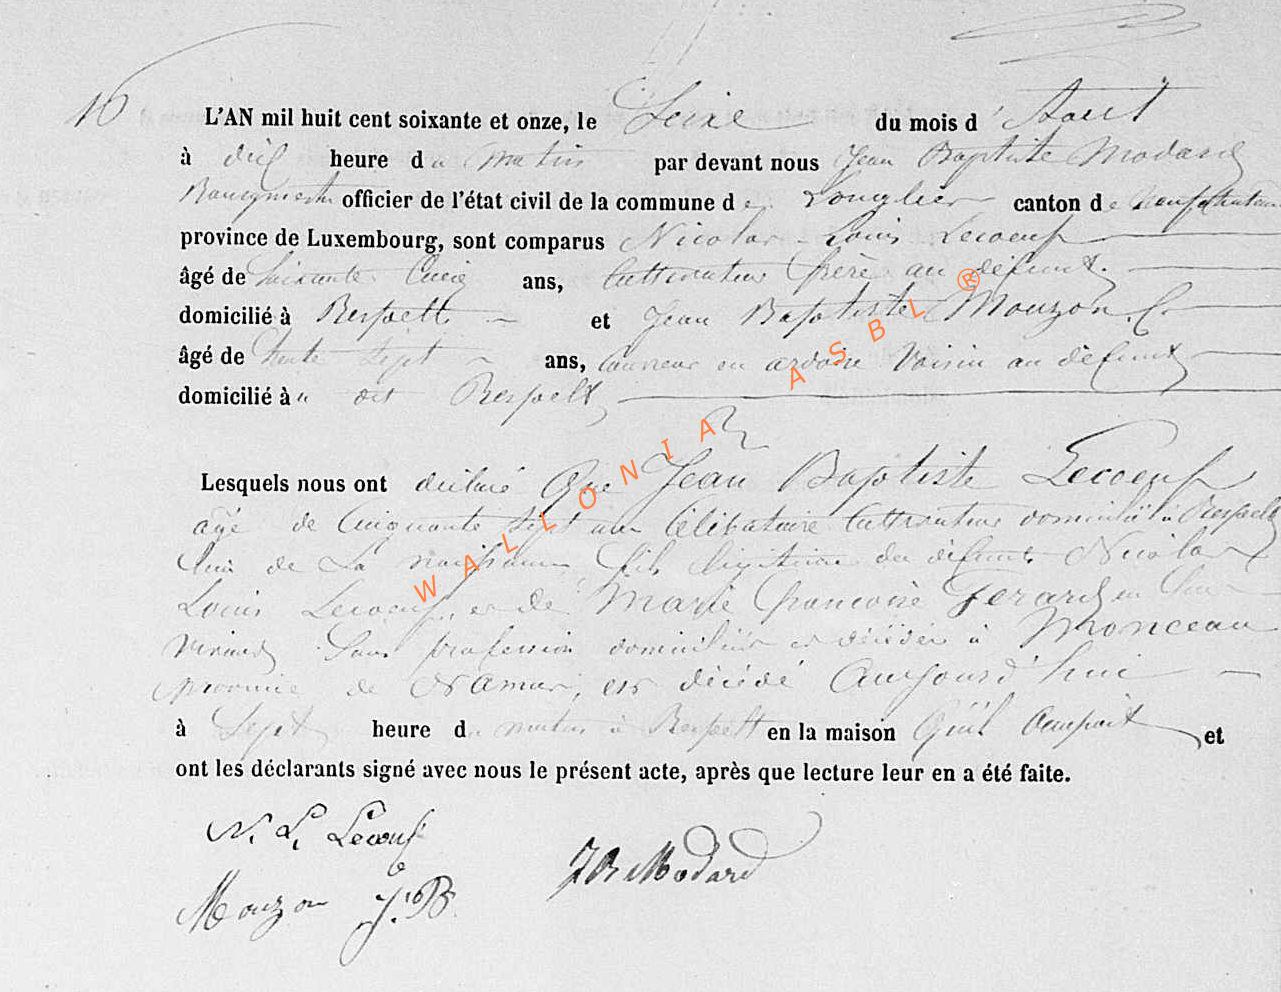 16
L'AN mil huit cent soixante et onze, le Seize du mois d'Aout
à dix heure du matin par devant nous Jean Baptiste Modard
Bourgmestre officier de l'état civil de la commune de Longlier canton de Neufchateau
province de Luxembourg, sont comparus Nicolas Louis Lecoeuf
âgé de Soixante ans, Cultivateur frère au défunt
domicilié à Respelt et Jean Baptiste Mouzon
âgé de trente sept ans, Couvreur en ardoise Voisin au défunt
domicilié à dit Respelt
Lesquels nous ont déclaré Que Jean Baptiste Lecoeuf
agé de Cinquante sept ans Célibataire Cultivateur domicilié à Respelt
lieu de Sa naissance, fils légitime des défunts Nicolas
Louis Lecoeuf, et de Marie Francoise Gerard en leur
vivant Sans profession domiciliés et décédés à Monceau
province de Namur, est décédé Aujourd'hui
à Sept heure du matin à Respelt en la maison Qu'il Occupait et
ont les déclarants signé avec nous le présent acte, après que lecture leur en a été faite.
N. L. Lecoeuf
JB Modard
Mouzon J. B.
WALLONIA ASBL ®